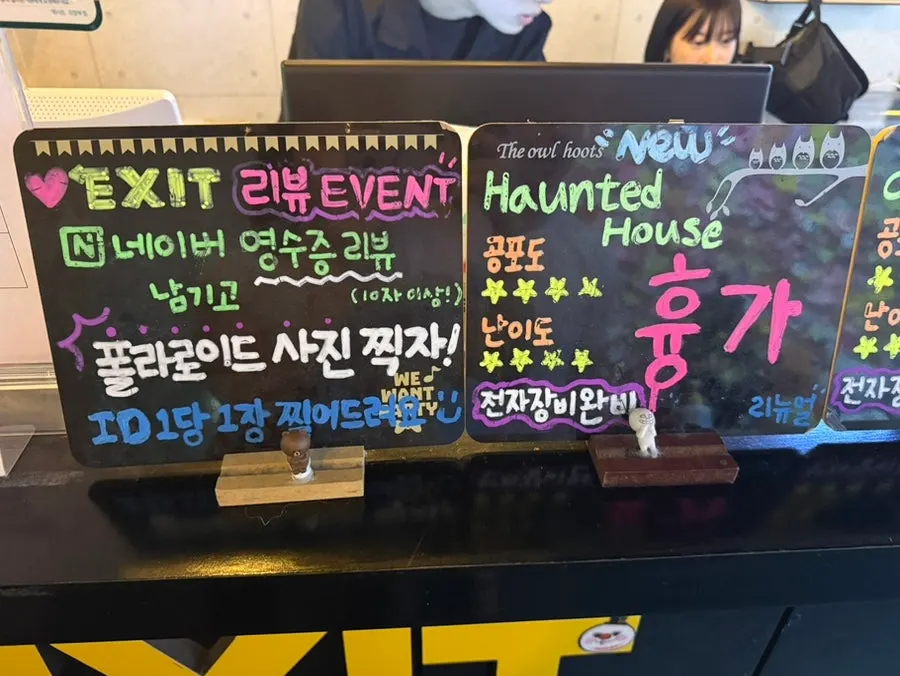 EXIT 리뷰 EVENT
N 네이버 영수증 리뷰
남기고 (10자 이상!)
폴라로이드 사진 찍자!
WE
WANT
ID 1당 1장 찍어드려요
The owl hoots NEW
Haunted
House
공포도
난이도
흉가
전자장비완비
리뉴얼
공
난이
전자장
EXIT